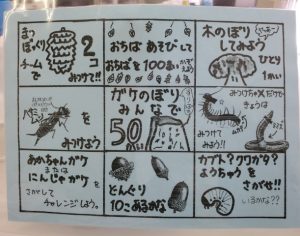 まつぼっくり
チームで
2コ
みつけて!!
おちばあそびして
おちばを100まい
木のぼり
してみよう
ひとり
1かい
を
みつけよう
ガケのぼり
みんなで
50
みつけちゃダメだけで
きょうは
みつけて
みよう!!
あかちゃんガケ
または
にんじゃガケを
さがして
チャレンジしよう。
どんぐり
10こあるかな
カブト?クワガタ??
ようちゅうを
さがせ!!
いるかな??